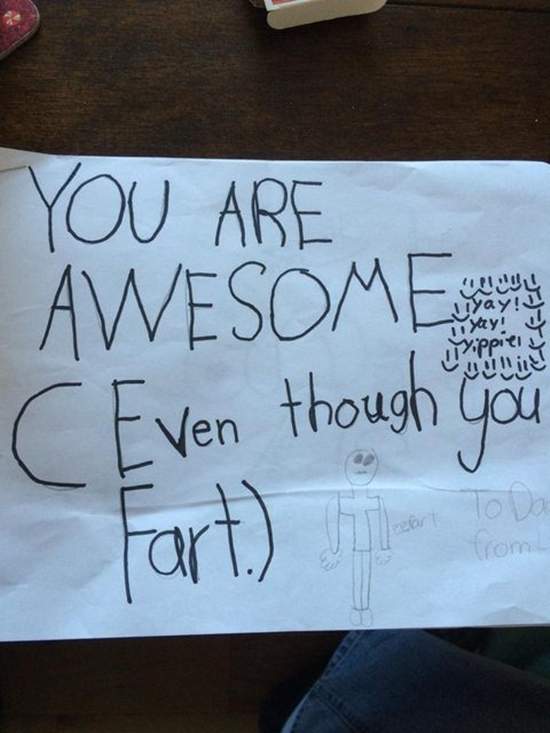 YOU ARE
AWESOME
yay!
yay!
yippie!
(Even though you
Fart.)
To Da
from L